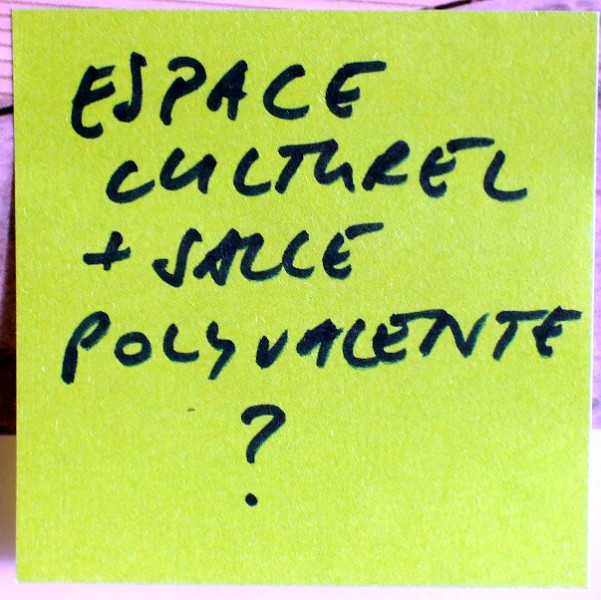 ESPACE
CULTUREL
+ SALLE
POLYVALENTE
?